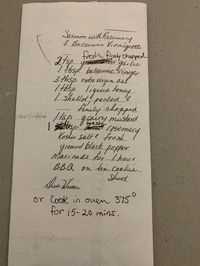 Salmon with Rosemary
& Balsamic Vinaigrette
fresh finely chopped
2 tsp garlic
1 Tbsp balsamic vinegar
3 Tbsp extra virgin oil
1 tbsp liquid honey
1 Shallot, peeled &
finely chopped
1 tsp grainy mustard
1 fresh rosemary
Kosher salt & fresh
ground black pepper
Marinade for 1 hour
BBQ on tin cookie
Sheet
or Cook in oven 375°
for 15-20 mins.